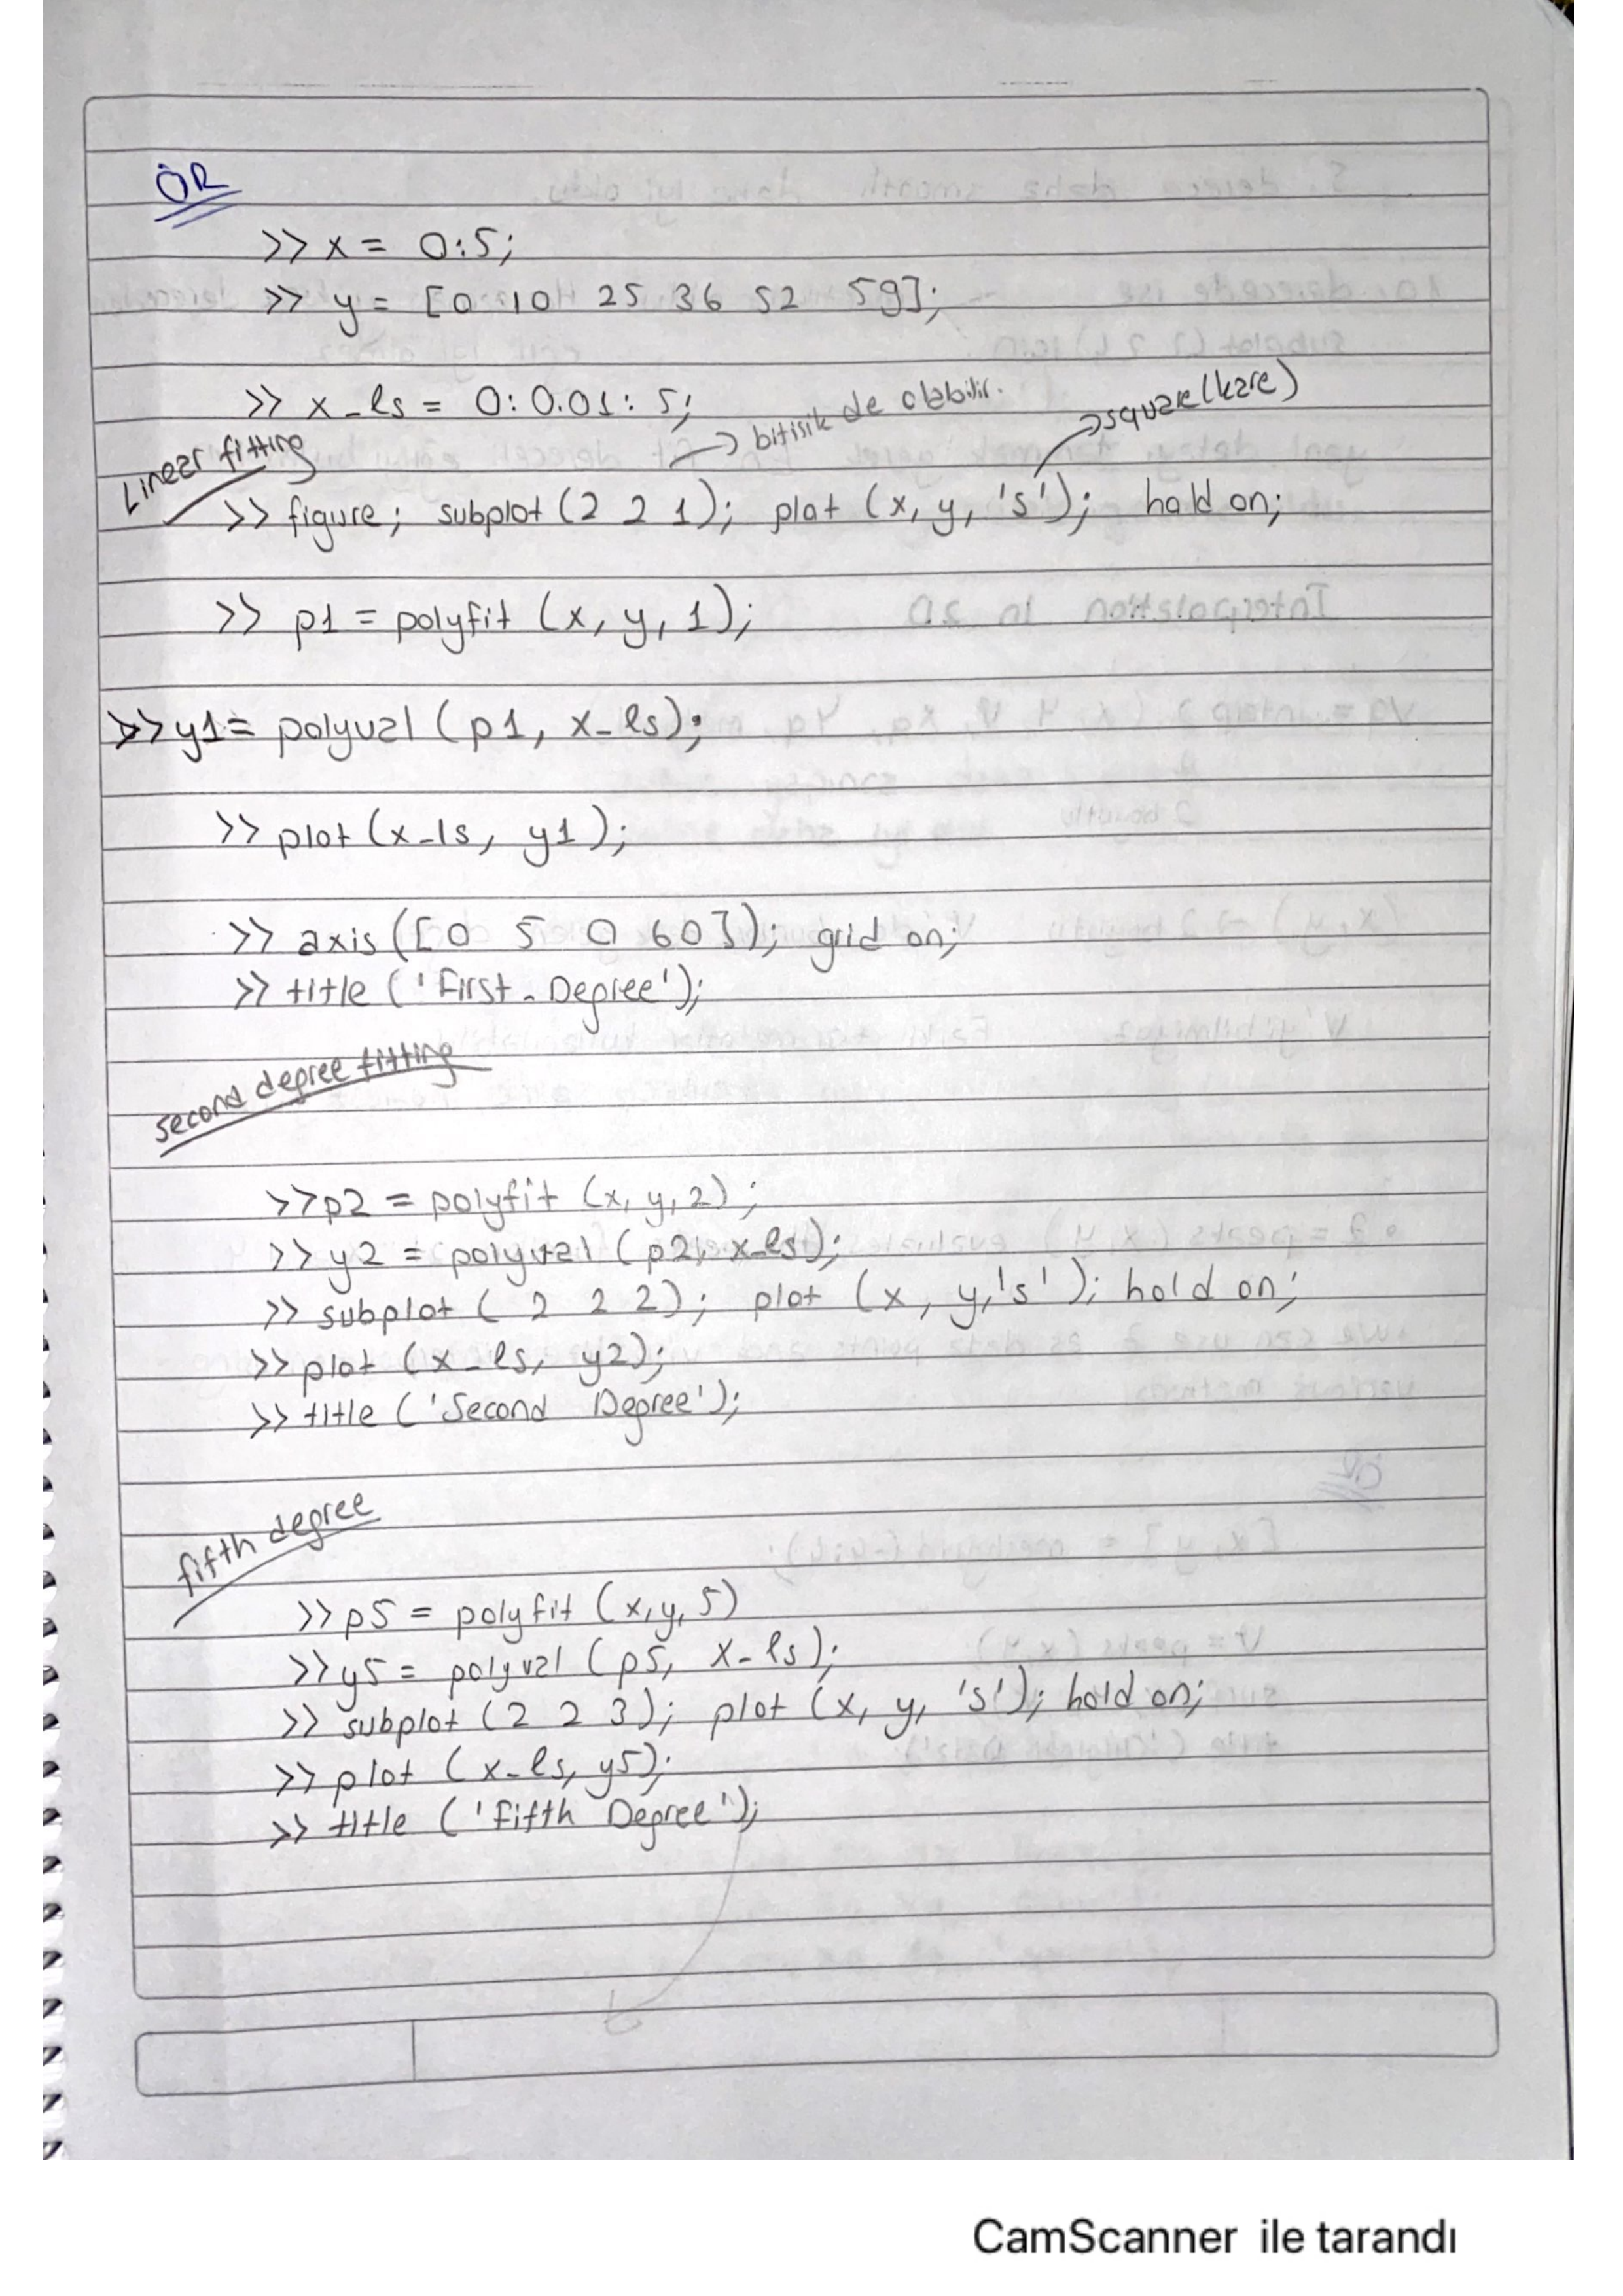 ÖR
>> x = 0:5;
>> y = [0 10 25 36 52 59];
>> x_ls = 0:0.01:5;
→ bitisik de olabilir.
→ square (kare)
Linear fitting
>> figure; subplot (2 2 1); plot (x, y, 's'); hold on;
>> p1 = polyfit (x, y, 1);
>> y1 = polyval (p1, x_ls);
>> plot (x_ls, y1);
>> axis ([0 5 0 60]); grid on;
>> title ('First_Degree');
second degree fitting
>> p2 = polyfit (x, y, 2);
>> y2 = polyval (p2, x_ls);
>> subplot ( 2 2 2); plot (x, y, 's'); hold on;
>> plot (x_ls, y2);
>> title ('Second Degree');
fifth degree
>> p5 = polyfit (x, y, 5)
>> y5 = polyval (p5, x_ls);
>> subplot (2 2 3); plot (x, y, 's'); hold on;
>> plot (x_ls, y5);
>> title ('Fifth Degree');
CamScanner ile tarandı